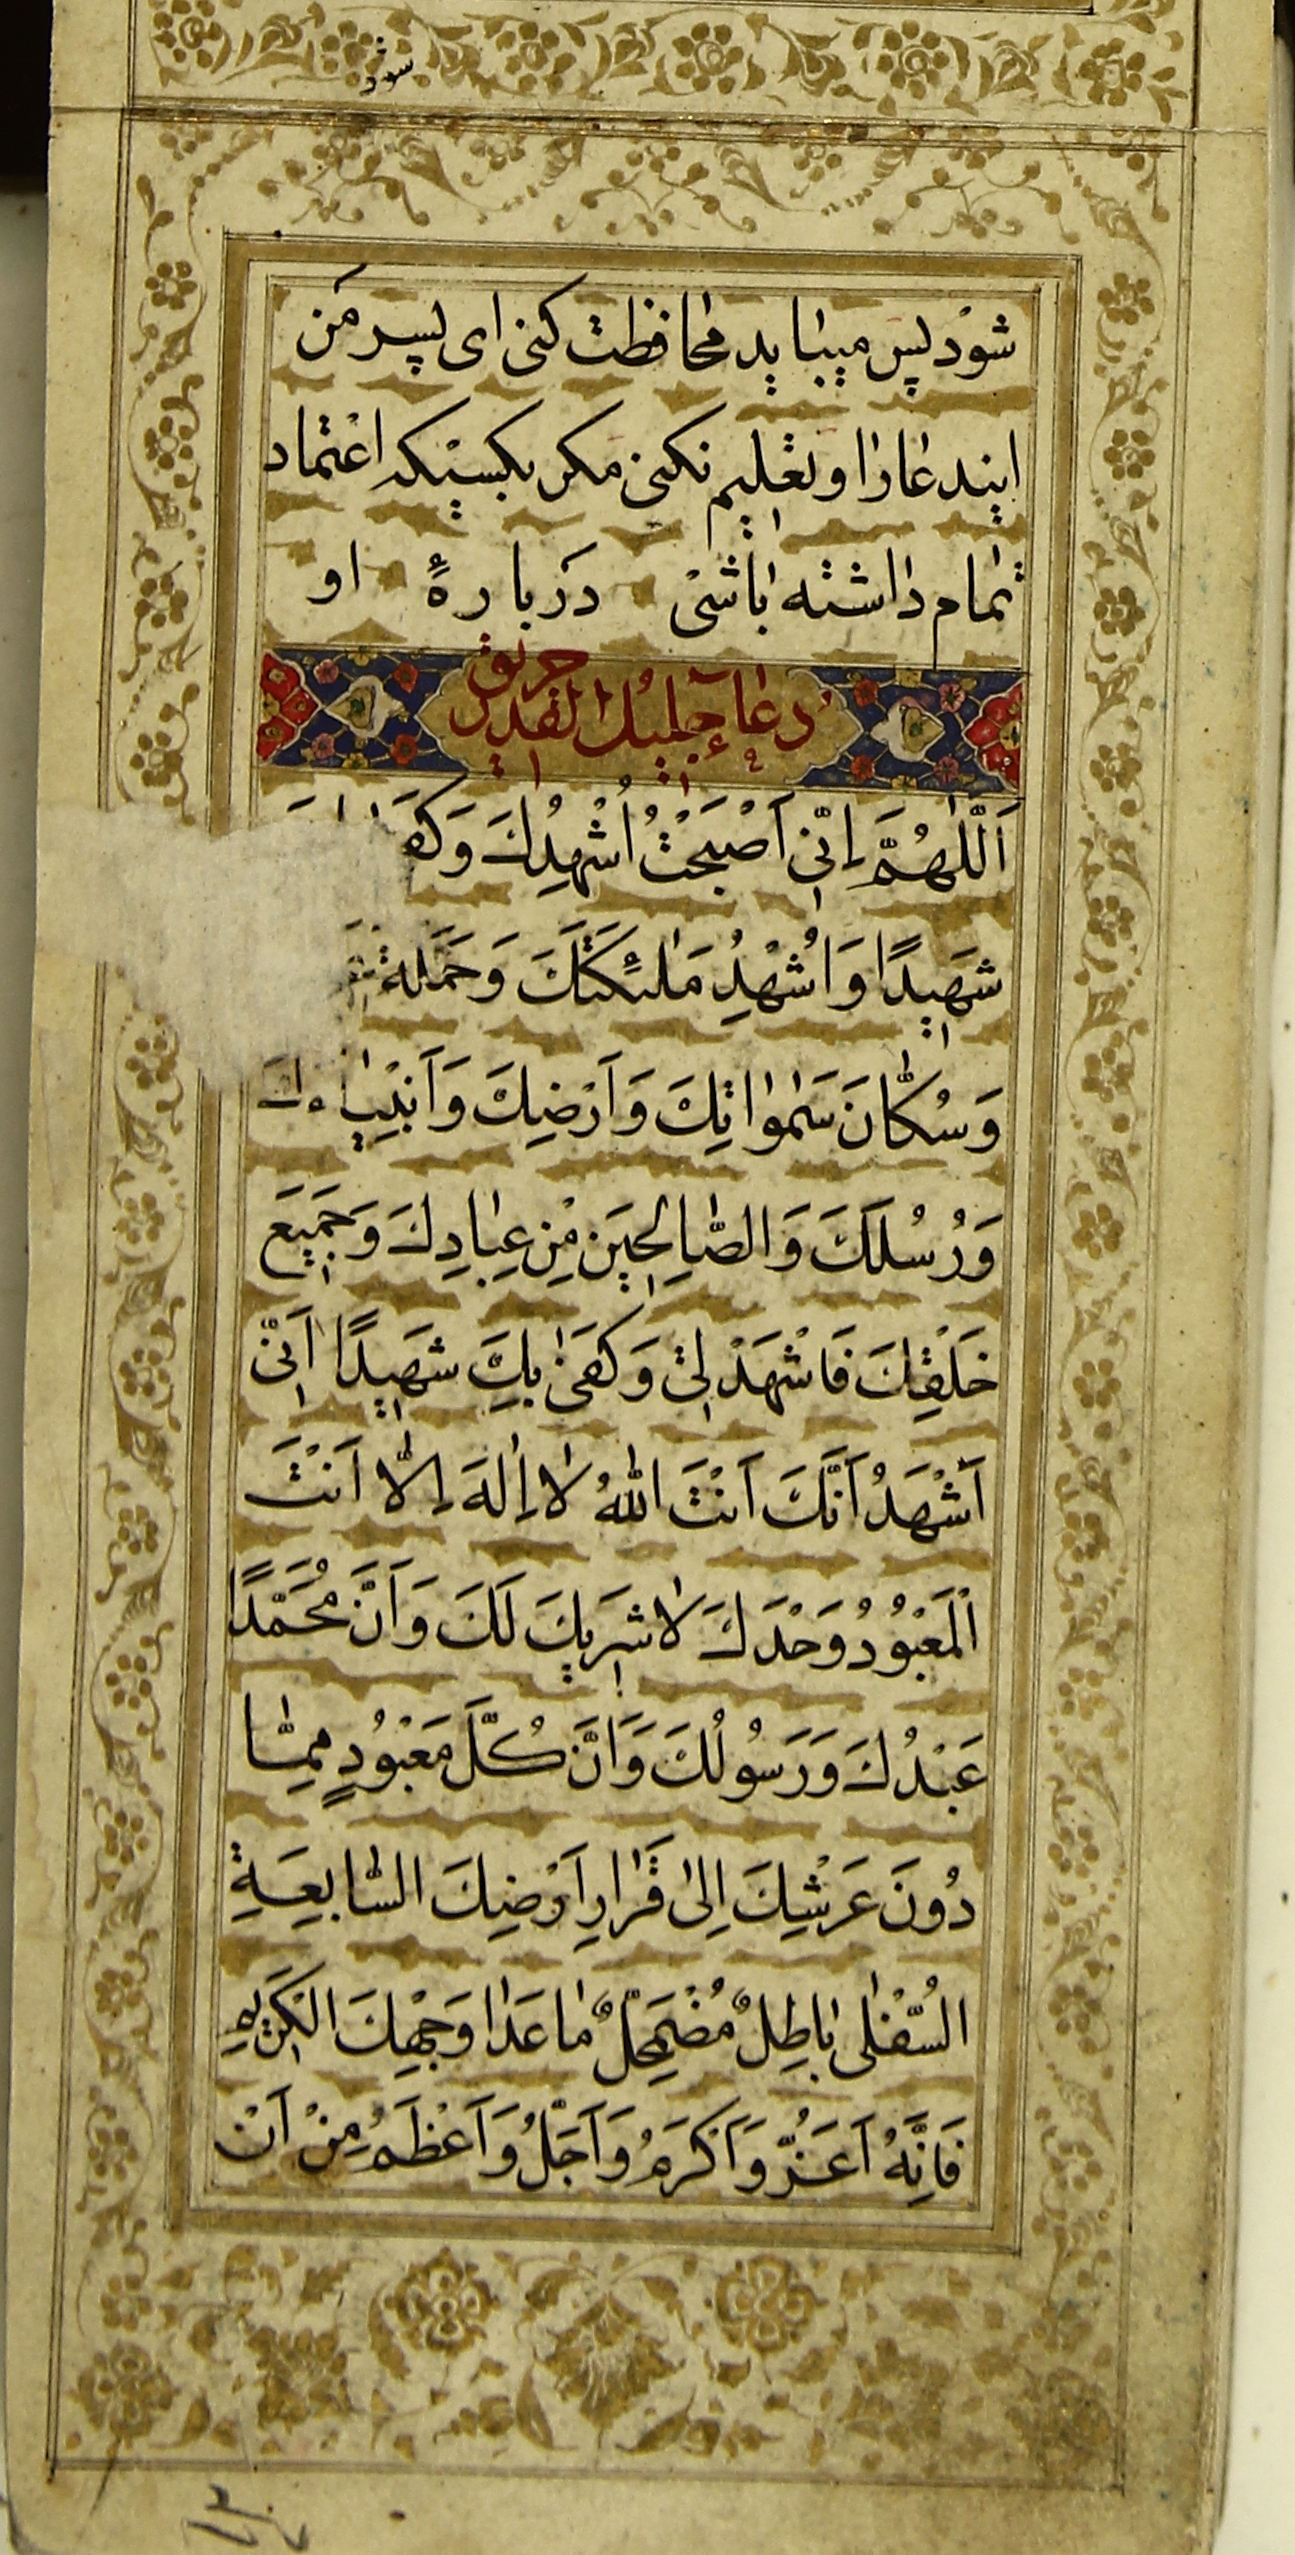 شود
شود پس میباید محافظت کنی ای پسر من
ایندعا را و تعلیم نکنی مکر بکسیکه اعتماد
تمام داشته باشی درباره او
دعاء جلیل القدر حریق
اَللّٰهُمَّ اِنّی اَصْبَحْتُ اُشْهِدُكَ وَكَفٰی
شَهیدًا وَاُشْهِدُ مَلٰئِكَتَكَ وَحَمَلَةَ
وَسُكّٰانَ سَمٰوٰاتِكَ وَاَرَضِیكَ وَاَنْبِیٰاءِكَ
وَرُسُلَكَ وَالصّٰالِحینَ مِنْ عِبٰادِكَ وَجَمیعَ
خَلْقِكَ فَاشْهَدْ لی وَكَفیٰ بِكَ شَهیدًا اَنّی
اَشْهَدُ اَنَّكَ اَنْتَ اللهُ لٰا اِلٰهَ اِلّٰا اَنْتَ
اَلْمَعْبُودُ وَحْدَكَ لٰا شَریكَ لَكَ وَاَنَّ مُحَمَّدًا
عَبْدُكَ وَرَسُولُكَ وَاَنَّ كُلَّ مَعْبُودٍ مِمّٰا
دُونَ عَرْشِكَ اِلیٰ قَرٰارِ اَرَضِیكَ السّٰابِعَةِ
السُّفْلٰی بٰاطِلٌ مُضْمَحِلٌّ مٰا عَدٰا وَجْهِكَ الْكَریمِ
فَاِنَّهُ اَعَزُّ وَاَكْرَمُ وَاَجَلُّ وَاَعْظَمُ مِنْ اَنْ